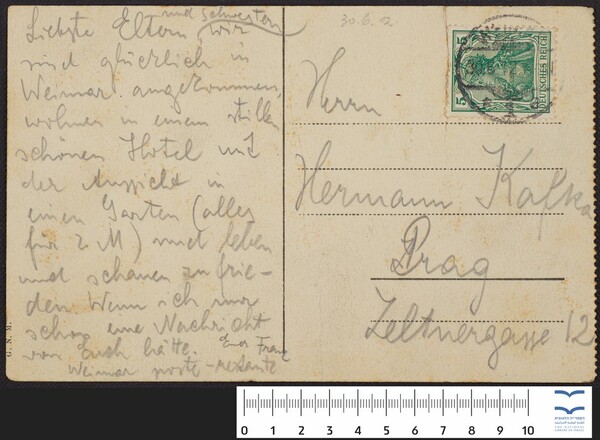 Liebste Eltern und Schwestern wir
sind glücklich in
Weimar angekommen,
wohnen in einem stillen
schönen Hotel mit
der Aussicht in
einen Garten (alles
für 2 M) und leben
und schauen zufrie-
den Wenn ich nur
schon eine Nachricht
von Euch hätte.
Euer Franz
Weimar poste-restante
G. N. M.
30.6.12
5 5
DEUTSCHES REICH
Herrn
Hermann Kafka
Prag
Zeltnergasse 12
0 1 2 3 4 5 6 7 8 9 10